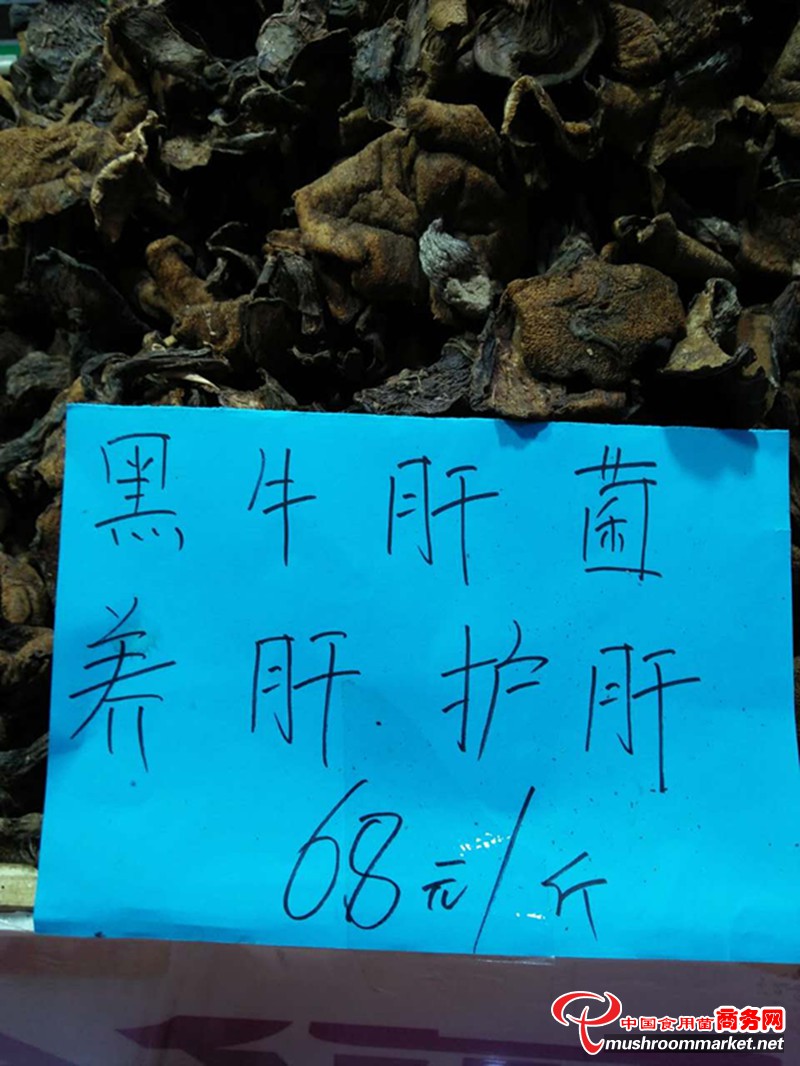 黑牛肝菌
养肝.护肝
68元/斤
中国食用菌商务网
mushroommarket.net